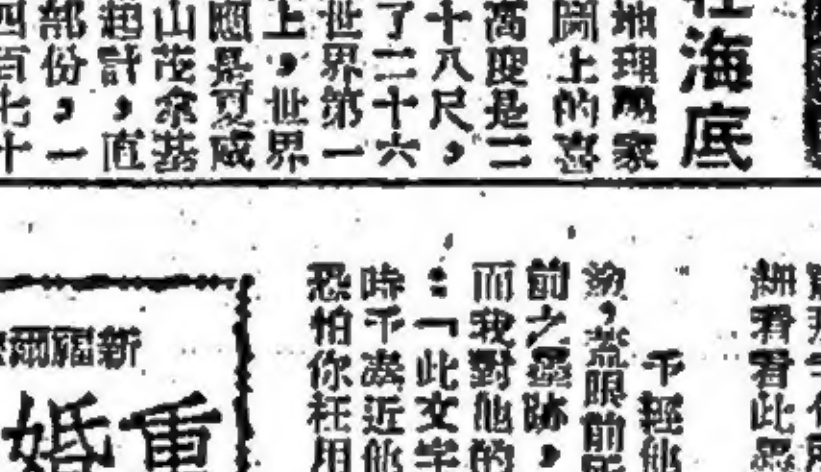 海底
地理學家
開上的喜
高度是二
十八尺，
了二十六
世界第一
上，世界
應是夏威
山茂奈基
起計，直
部份，一
四百七十
辦看看此
予輕他
激，蓋眼前所
前之墨跡，
而我對他的
：「此文字
時予湊近他
恐怕你枉用
新福爾
重
婚